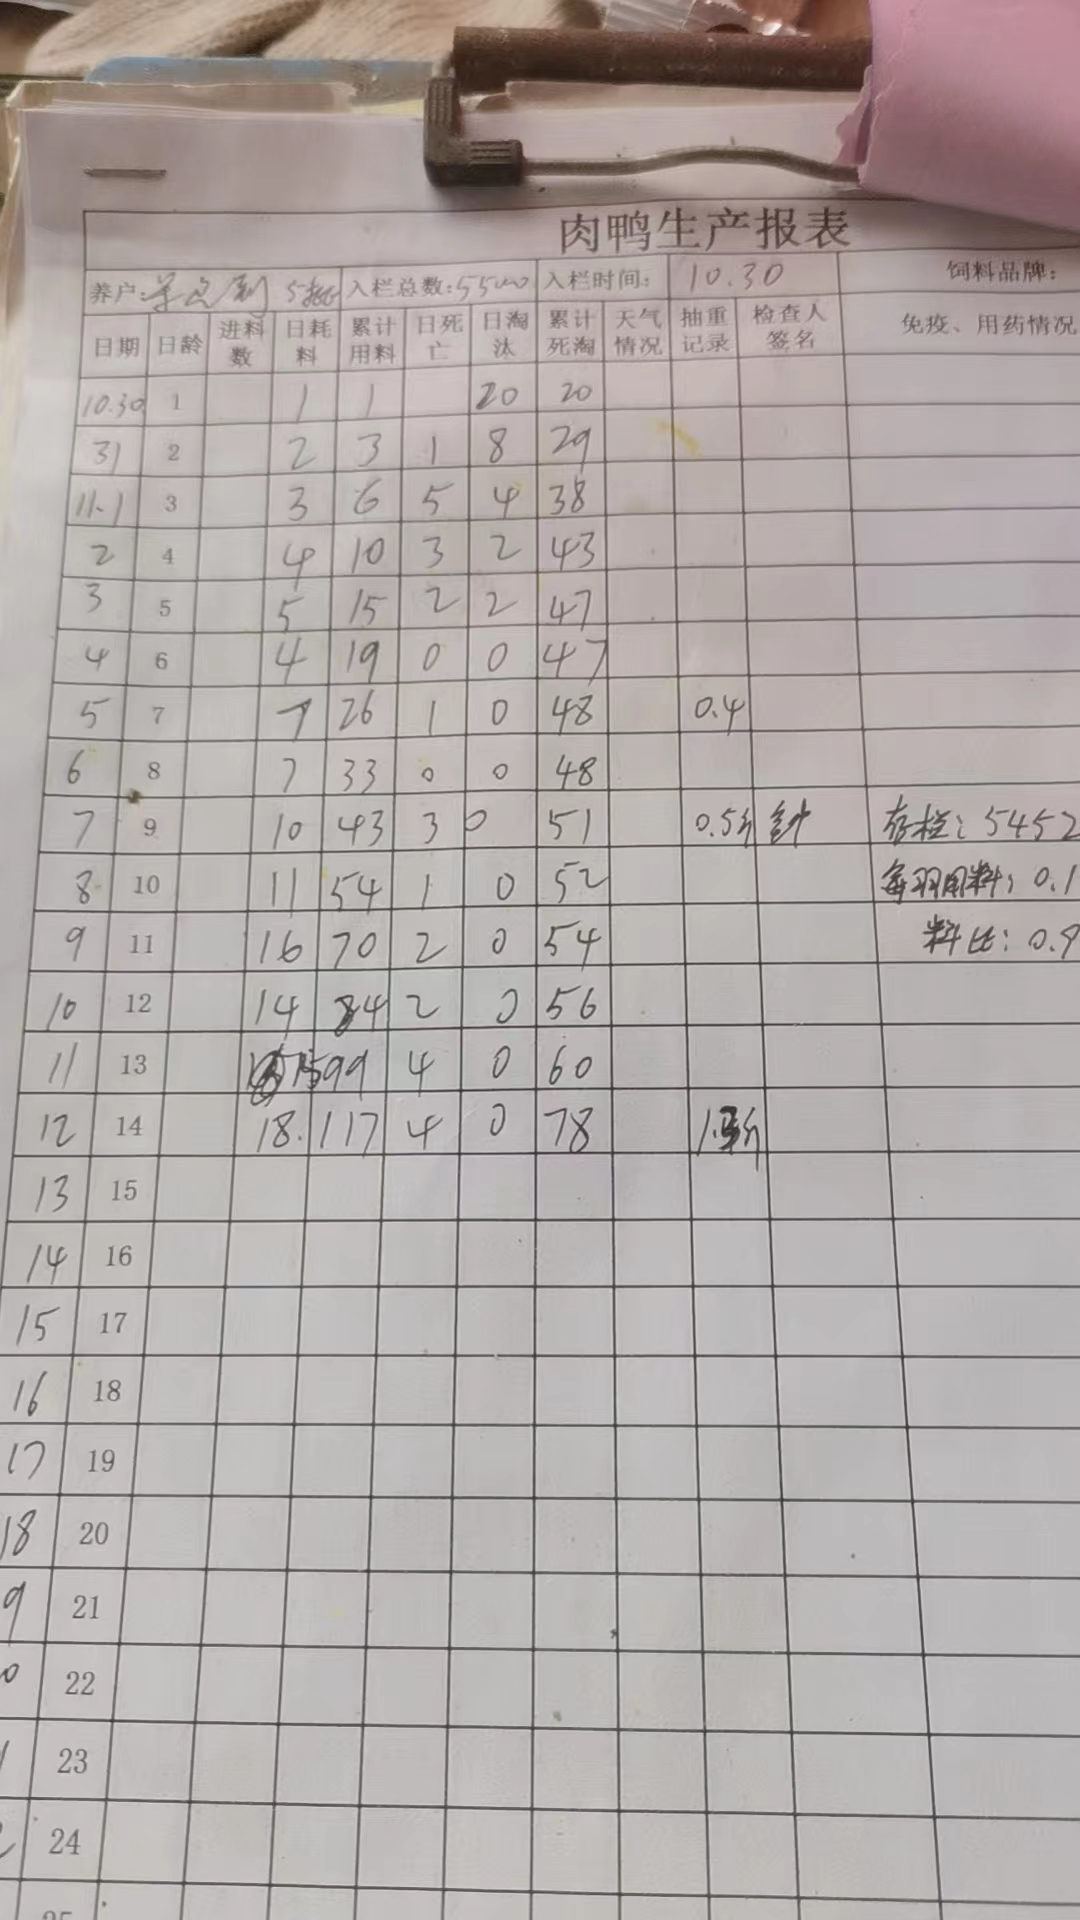 肉鸭生产报表
养户: 5批 入栏总数:5500 入栏时间: 10.30 饲料品牌:
日期 日龄 进料数 日耗料 累计用料 日死亡 日淘汰 累计死淘 天气情况 抽重记录 检查人签名 免疫、用药情况
10.30 1 1 1 20 20
31 2 2 3 1 8 29
11.1 3 3 6 5 4 38
2 4 4 10 3 2 43
3 5 5 15 2 2 47
4 6 4 19 0 0 47
5 7 7 26 1 0 48 0.4
6 8 7 33 0 0 48
7 9 10 43 3 0 51 0.5斤 存栏:5452
8 10 11 54 1 0 52 每羽用料:0.1
9 11 16 70 2 0 54 料比:0.9
10 12 14 84 2 0 56
11 13 15 99 4 0 60
12 14 18. 117 4 0 78
13 15
14 16
15 17
16 18
17 19
18 20
9 21
0 22
1 23
2 24
25